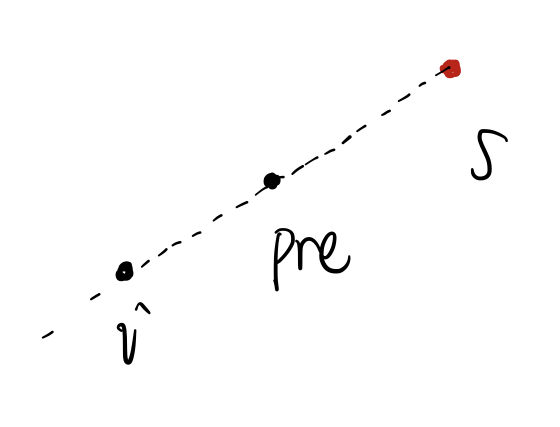 S
pre
v̂